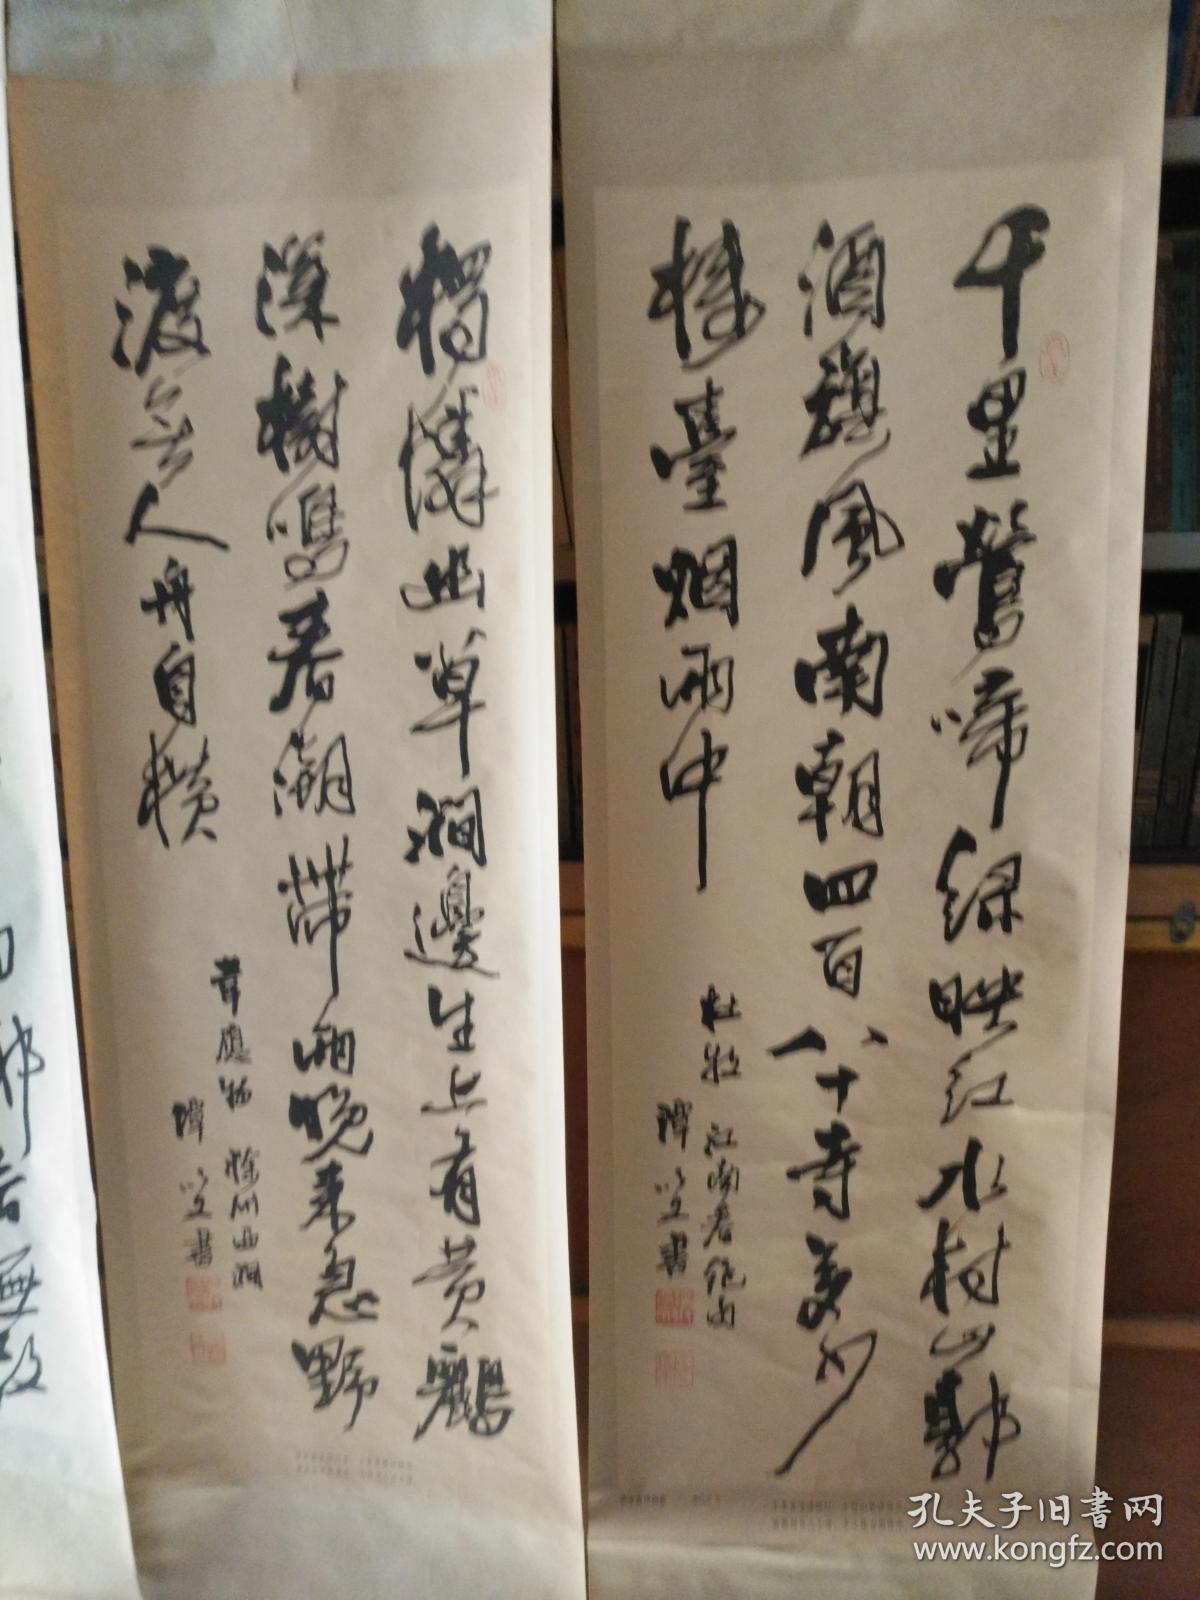 千里鶯啼綠映紅水村山郭
酒旗風南朝四百八十寺多少
樓臺烟雨中
杜牧 江南春絕句
譚以文書
獨憐幽草澗邊生上有黃鸝
深樹鳴春潮帶雨晚來急野
渡無人舟自橫
韋應物 滁州西澗
譚以文書
孔夫子旧书网
www.kongfz.com